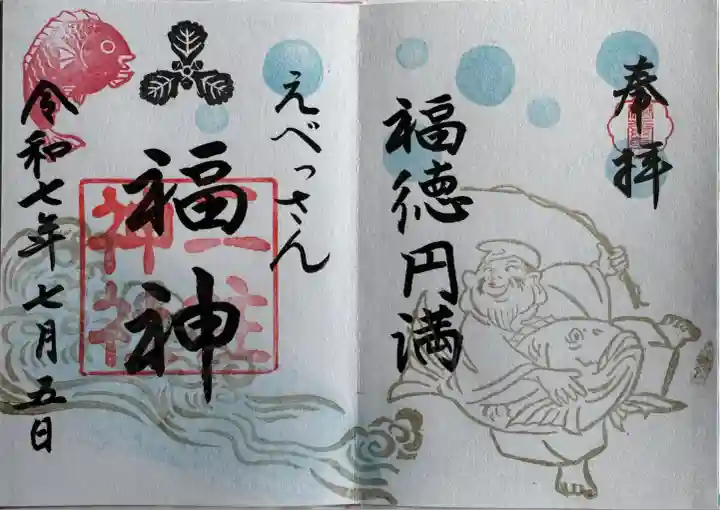 奉拝
福徳円満
えべっさん
福神
令和七年七月五日